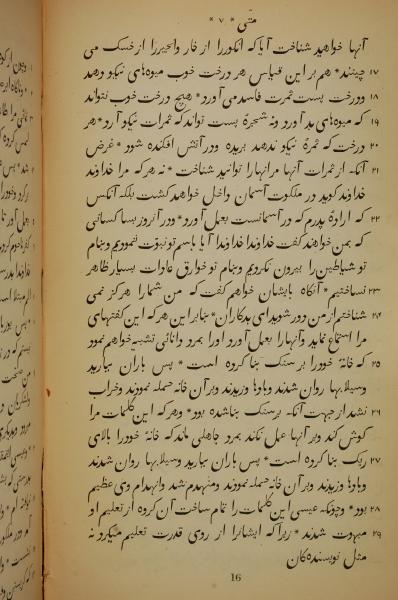 متی * ۷ *
آنها خواهید شناخت آیا که انکوررا از خار وانجیررا از خسک می
۱۷ چینند * هم بر این قیاس هر درخت خوب میوه‌های نیکو دهد
۱۸ ودرخت پست ثمرت فاسد می آورد * هیچ درخت خوب نتواند
۱۹ که میوه‌های بد آورد ونه شجرهٔ پست تواند که ثمرات نیکو آرد * هر
۲۰ درخت که ثمرهٔ نیکو ندهد بریده ودر آتش افکنده شود * غرض
۲۱ آنکه از ثمرات آنها مر انهارا توانید شناخت * نه هر که مرا خداوند
خداوند کوید در ملکوت آسمان داخل خواهد کشت بلکه آنکس
۲۲ که ارادهٔ پدرم که در آسمانست بعمل آورد * ودر آنروز بسا کسانی
که بمن خواهند کفت خداوندا خداوندا آیا باسم تو نبوّت ننمودیم وبنام
تو شیاطین را بیرون نکردیم وبنام تو خوارق عادات بسیار ظاهر
۲۳ نساختیم * آنکاه بایشان خواهم کفت که من شمارا هرکز نمی
۲۴ شناختم از من دور شوید ای بدکاران * بنابر این هر که این کفتهای
مرا استماع نماید وآنهارا بعمل آورد اورا بمرد دانائی تشبیه خواهم نمود
۲۵ که خانهٔ خودرا بر سنک بنا کرده است * پس باران ببارید
وسیلابها روان شدند وبادها وزیدند وبر آن خانه حمله نمودند وخراب
۲۶ نشد از جهت آنکه بر سنک بنا شده بود * وهر که این کلمات مرا
کوش کند وبر آنها عمل نکند بمرد جاهلی ماند که خانهٔ خودرا بالای
۲۷ ریک بنا کرده است * پس باران ببارید وسیلابها روان شدند
وبادها وزیدند وبر آن خانه حمله نمودند ومنهدم شد وانهدام وی عظیم
۲۸ بود * وچونکه عیسی این کلمات را تمام ساخت آن کروه از تعلیم او
۲۹ مبهوت شدند * زیرا که ایشانرا از روی قدرت تعلیم میکرد نه
مثل نویسنده‌کان
16